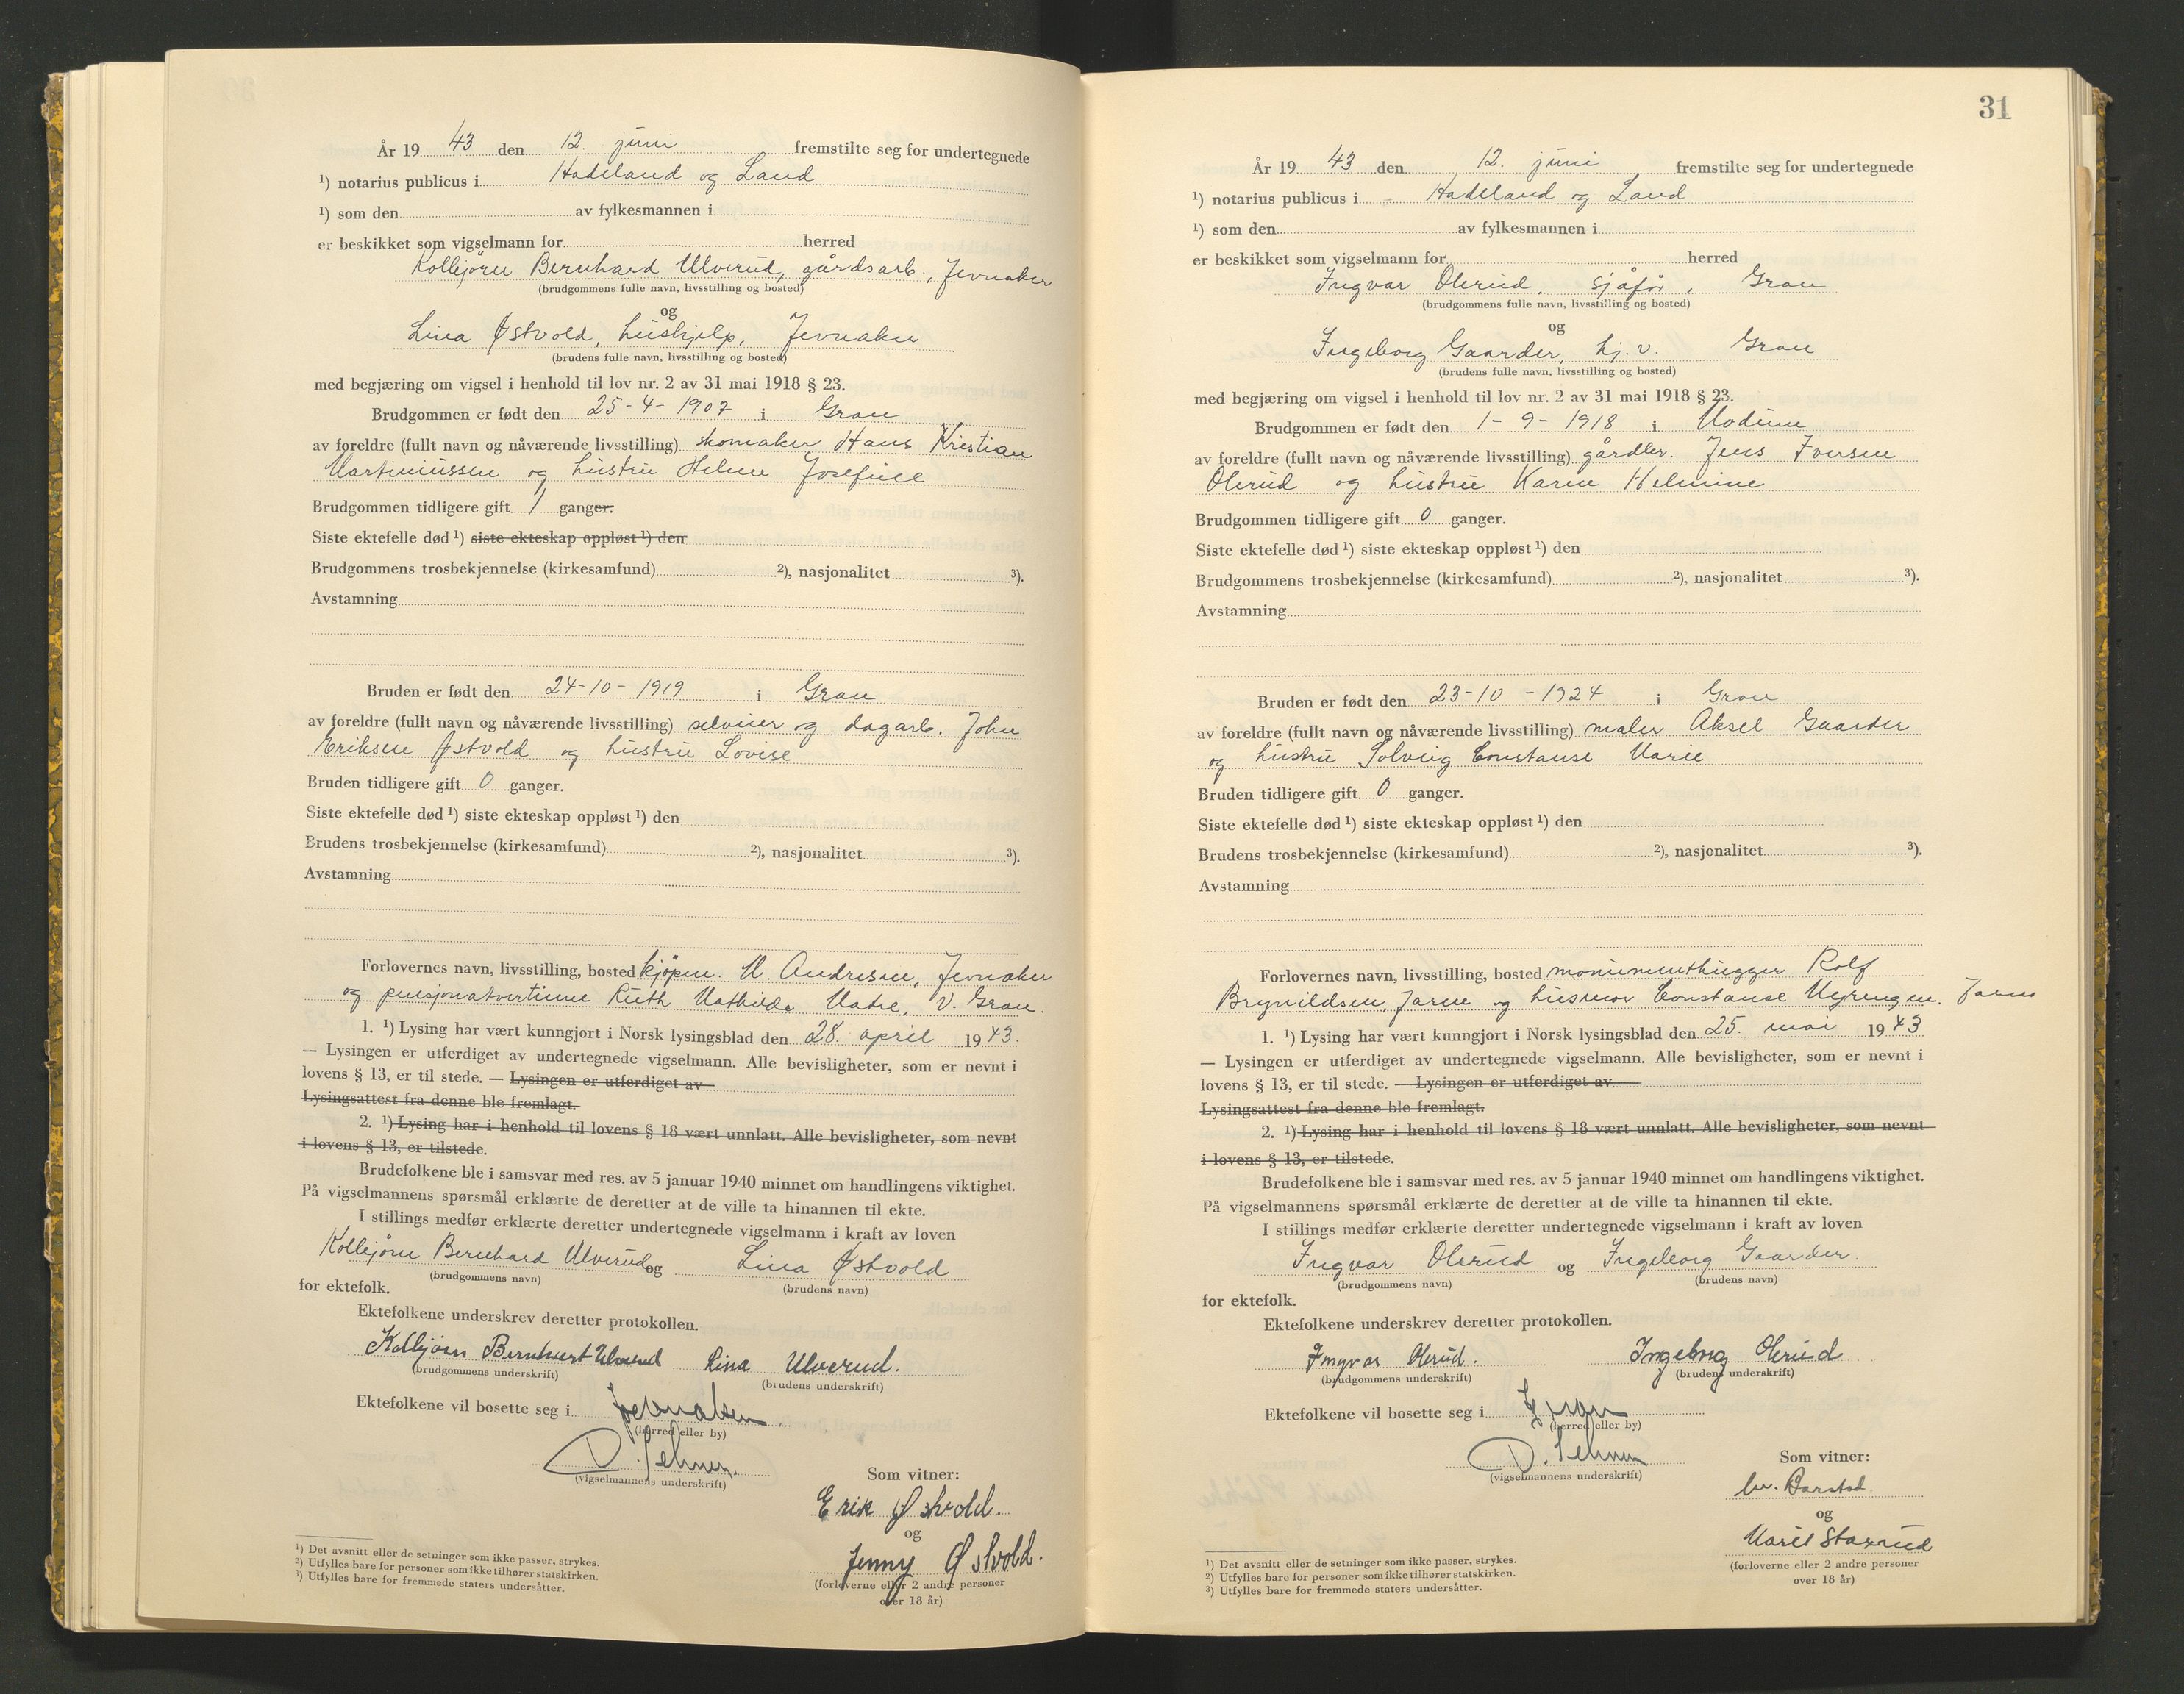 År 19 43 den 12. juni fremstilte seg for undertegnede
¹) notarius publicus i Hadeland og Land
¹) som den av fylkesmannen i
er beskikket som vigselmann for herred
Kolbjørn Bernhard Ulverud, gårdsarb., Jevnaker
(brudgommens fulle navn, livsstilling og bosted)
og
Lina Østvold, hushjelp, Jevnaker
(brudens fulle navn, livsstilling og bosted)
med begjæring om vigsel i henhold til lov nr. 2 av 31 mai 1918 § 23.
Brudgommen er født den 25-4-1907 i Gran
av foreldre (fullt navn og nåværende livsstilling) skomaker Hans Kristian
Martiniussen og hustru Helene Josefine
Brudgommen tidligere gift 1 ganger.
Siste ektefelle død ¹) siste ekteskap oppløst ¹) den
Brudgommens trosbekjennelse (kirkesamfund) ²), nasjonalitet ³).
Avstamning
Bruden er født den 24-10-1919 i Gran
av foreldre (fullt navn og nåværende livsstilling) selveier og dagarb. John
Eriksen Østvold og hustru Lovise
Bruden tidligere gift 0 ganger.
Siste ektefelle død ¹) siste ekteskap oppløst ¹) den
Brudens trosbekjennelse (kirkesamfund) ²), nasjonalitet ³).
Avstamning
Forlovernes navn, livsstilling, bosted kjøpm. M. Andresen, Jevnaker
og pensjonatvertinne Ruth Mathilde Matre, V. Gran.
1. ¹) Lysing har vært kunngjort i Norsk lysingsblad den 28. april 1943.
— Lysingen er utferdiget av undertegnede vigselmann. Alle bevisligheter, som er nevnt i
lovens § 13, er til stede. — Lysingen er utferdiget av
Lysingsattest fra denne ble fremlagt.
2. ¹) Lysing har i henhold til lovens § 18 vært unnlatt. Alle bevisligheter, som nevnt
i lovens § 13, er tilstede.
Brudefolkene ble i samsvar med res. av 5 januar 1940 minnet om handlingens viktighet.
På vigselmannens spørsmål erklærte de deretter at de ville ta hinannen til ekte.
I stillings medfør erklærte deretter undertegnede vigselmann i kraft av loven
Kolbjørn Bernhard Ulverud og Lina Østvold
(brudgommens navn) (brudens navn)
for ektefolk.
Ektefolkene underskrev deretter protokollen.
Kolbjørn Bernhart Ulverud Lina Ulverud.
(brudgommens underskrift) (brudens underskrift)
Ektefolkene vil bosette seg i Jevnaker
(herred eller by)
(vigselmannens underskrift)
Som vitner:
Erik Østvold.
og
Jenny Østvold.
(forloverne eller 2 andre personer
over 18 år)
¹) Det avsnitt eller de setninger som ikke passer, strykes.
²) Utfylles bare for personer som ikke tilhører statskirken.
³) Utfylles bare for fremmede staters undersåtter.
31
År 19 43 den 12. juni fremstilte seg for undertegnede
¹) notarius publicus i Hadeland og Land
¹) som den av fylkesmannen i
er beskikket som vigselmann for herred
Ingvar Olerud, sjåfør, Gran
(brudgommens fulle navn, livsstilling og bosted)
og
Ingeborg Gaarder, hj.v. Gran
(brudens fulle navn, livsstilling og bosted)
med begjæring om vigsel i henhold til lov nr. 2 av 31 mai 1918 § 23.
Brudgommen er født den 1-9-1918 i Modum
av foreldre (fullt navn og nåværende livsstilling) gårdbr. Jens Iversen
Olerud og hustru Karen Helmine
Brudgommen tidligere gift 0 ganger.
Siste ektefelle død ¹) siste ekteskap oppløst ¹) den
Brudgommens trosbekjennelse (kirkesamfund) ²), nasjonalitet ³).
Avstamning
Bruden er født den 23-10-1924 i Gran
av foreldre (fullt navn og nåværende livsstilling) maler Aksel Gaarder
og hustru Solveig Constanse Marie
Bruden tidligere gift 0 ganger.
Siste ektefelle død ¹) siste ekteskap oppløst ¹) den
Brudens trosbekjennelse (kirkesamfund) ²), nasjonalitet ³).
Avstamning
Forlovernes navn, livsstilling, bosted monumenthugger Rolf
Brynildsen, Jaren og husmor Constanse Myrengen. Jaren
1. ¹) Lysing har vært kunngjort i Norsk lysingsblad den 25. mai 1943
— Lysingen er utferdiget av undertegnede vigselmann. Alle bevisligheter, som er nevnt i
lovens § 13, er til stede. — Lysingen er utferdiget av
Lysingsattest fra denne ble fremlagt.
2. ¹) Lysing har i henhold til lovens § 18 vært unnlatt. Alle bevisligheter, som nevnt
i lovens § 13, er tilstede.
Brudefolkene ble i samsvar med res. av 5 januar 1940 minnet om handlingens viktighet.
På vigselmannens spørsmål erklærte de deretter at de ville ta hinannen til ekte.
I stillings medfør erklærte deretter undertegnede vigselmann i kraft av loven
Ingvar Olerud og Ingeborg Gaarder.
(brudgommens navn) (brudens navn)
for ektefolk.
Ektefolkene underskrev deretter protokollen.
Ingvar Olerud. Ingeborg Olerud
(brudgommens underskrift) (brudens underskrift)
Ektefolkene vil bosette seg i Gran
(herred eller by)
(vigselmannens underskrift)
Som vitner:
Barstad
og
Marit Staxrud
(forloverne eller 2 andre personer
over 18 år)
¹) Det avsnitt eller de setninger som ikke passer, strykes.
²) Utfylles bare for personer som ikke tilhører statskirken.
³) Utfylles bare for fremmede staters undersåtter.